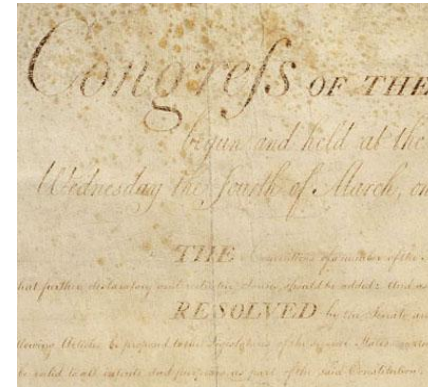 Congreſs OF THE
begun and held at the
Wednesday the fourth of March, on
THE Conventions of a number of the
hat further declaratory and restrictive clauses should be added: And as
RESOLVED by the Senate and
llowing Articles be proposed to the Legislatures of the several States
be valid to all intents and purposes as part of the said Constitution